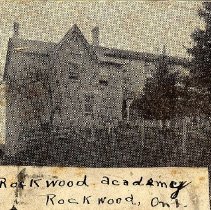 Rockwood academy
Rockwood, Ont.